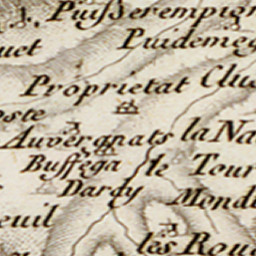 Puisserempign
uet
Puidemeg
Proprietat Clu
oste
Auvergnats la Na
Buffega le Tour
Dardy Mondi
euil
les Roue